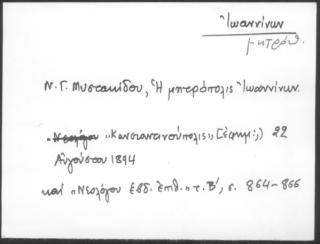 Ἰωαννίνων
μητρόπ.
Ν. Γ. Μυστακίδου, Ἡ μητρόπολις Ἰωαννίνων.
"Νεολόγου "Κωνσταντινούπολις" [ἐφημ.], 22
Αὐγούστου 1894
καὶ "Νεολόγου ἑβδ. ἐπιθ." τ. Β', σ. 864-866